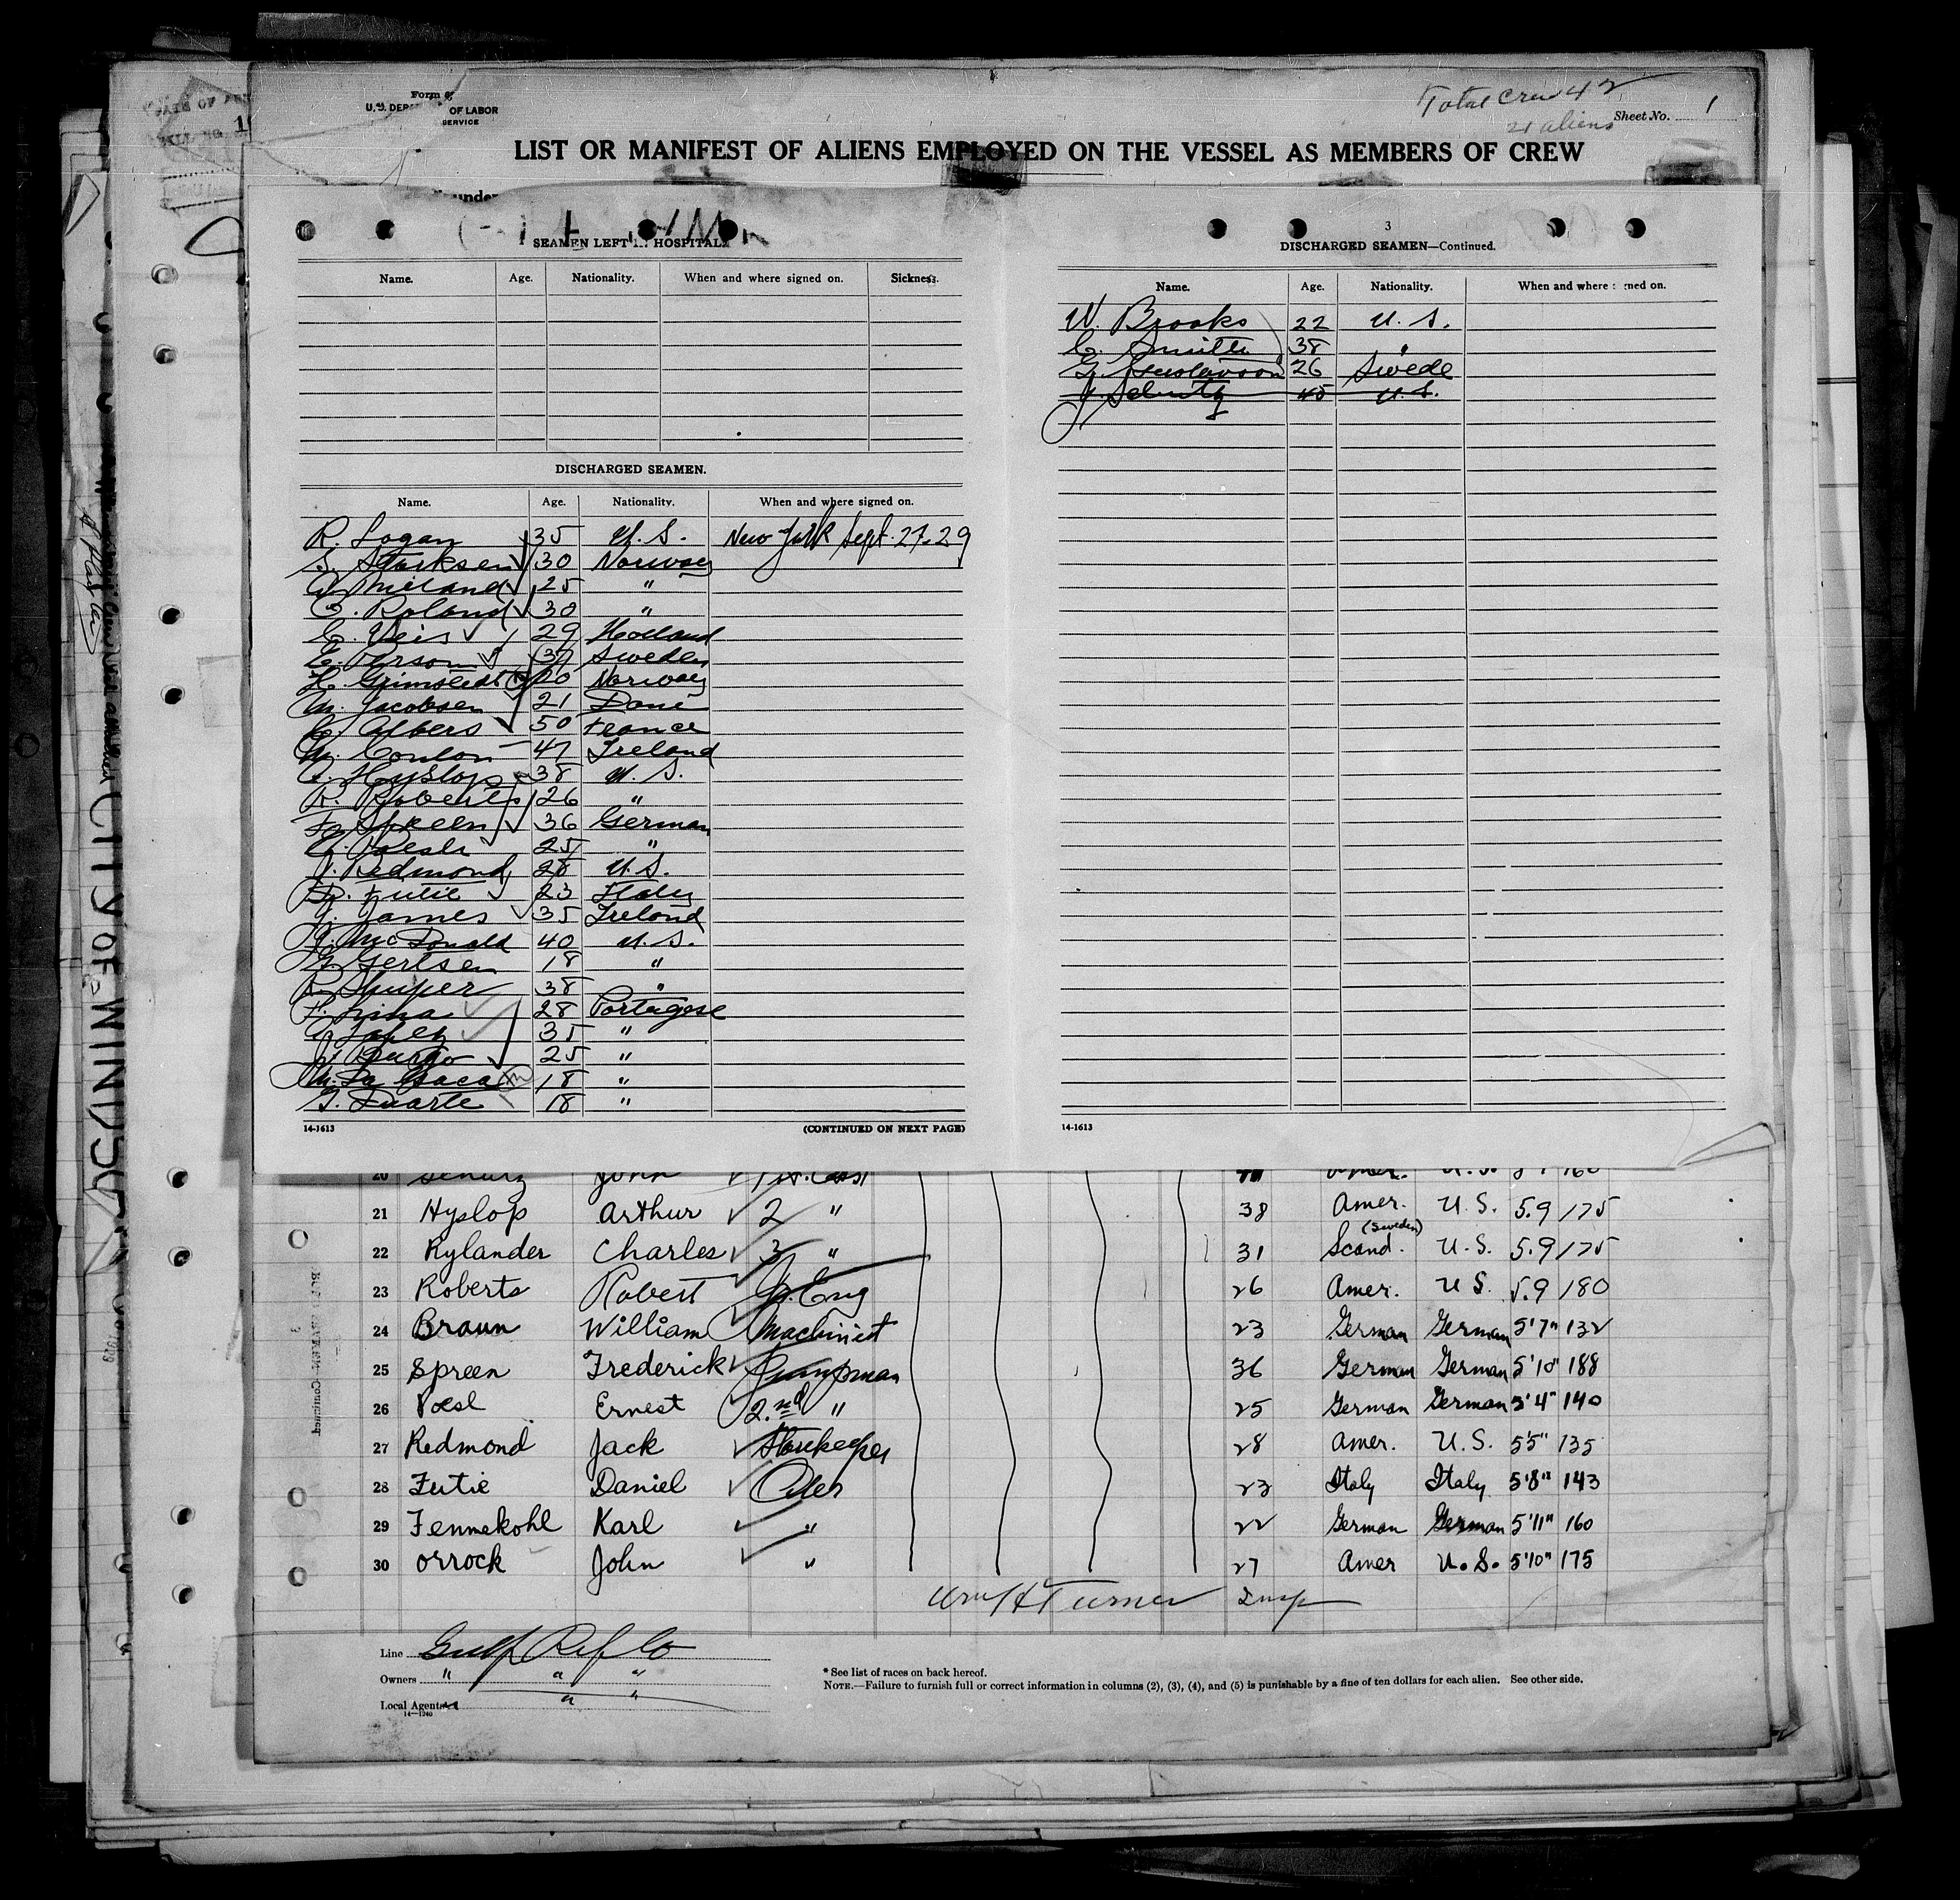 Total Crew 42
21 aliens
Sheet No. 1
Form
U.S. DEP OF LABOR
SERVICE
LIST OR MANIFEST OF ALIENS EMPLOYED ON THE VESSEL AS MEMBERS OF CREW
under
SEAMEN LEFT IN HOSPITAL
Name. Age. Nationality. When and where signed on. Sickness.
DISCHARGED SEAMEN.
Name. Age. Nationality. When and where signed on.
R. Logan 35 U.S. New York Sept. 27-29
S. Starksen 30 Norway
Mieland 25 "
Roland 30 "
Veis 29 Holland
E. Person 37 Sweden
H. Grimstedt 20 Norway
M. Jacobsen 21 Dane
Albers 50 France
M. Conlon 47 Ireland
A. Hyslop 38 U.S.
R. Roberts 26 "
F. Spreen 36 German
E. Poesl 25 "
J. Redmond 28 U.S.
D. Futie 23 Italy
J. James 35 Ireland
J. McDonald 40 U.S.
Gertsen 18 "
38 "
F. Lima 28 Portugese
Lopez 35 "
J. Burgo 25 "
M. La Gaca 18 "
G. Duarte 18 "
14-1613 (CONTINUED ON NEXT PAGE)
3
DISCHARGED SEAMEN—Continued.
Name. Age. Nationality. When and where signed on.
W. Brooks 22 U.S.
C. Smith 38 "
G. Gustavson 26 Swede
J. Schutz 45 U.S.
14-1613
20 Schurz John 1st. Asst Amer. U.S. 160
21 Hyslop Arthur 2 " 38 Amer. U.S. 5.9 175
22 Rylander Charles 3 " 31 Scand. (Sweden) U.S. 5.9 175
23 Roberts Robert Jr. Eng 26 Amer. U.S. 5.9 180
24 Braun William Machinist 23 German German 5'7" 132
25 Spreen Frederick Pumpman 36 German German 5'10" 188
26 Poesl Ernest 2.nd " 25 German German 5'4" 140
27 Redmond Jack Storekeeper 28 Amer. U.S. 5'5" 135
28 Futie Daniel Oiler 23 Italy Italy 5'8" 143
29 Fennekohl Karl " 22 German German 5'11" 160
30 Orrock John " 27 Amer U.S. 5'10" 175
Wm H Turner Insp
Line Gulf Ref Co
Owners " " "
Local Agents " "
14—1240
* See list of races on back hereof.
NOTE.—Failure to furnish full or correct information in columns (2), (3), (4), and (5) is punishable by a fine of ten dollars for each alien. See other side.